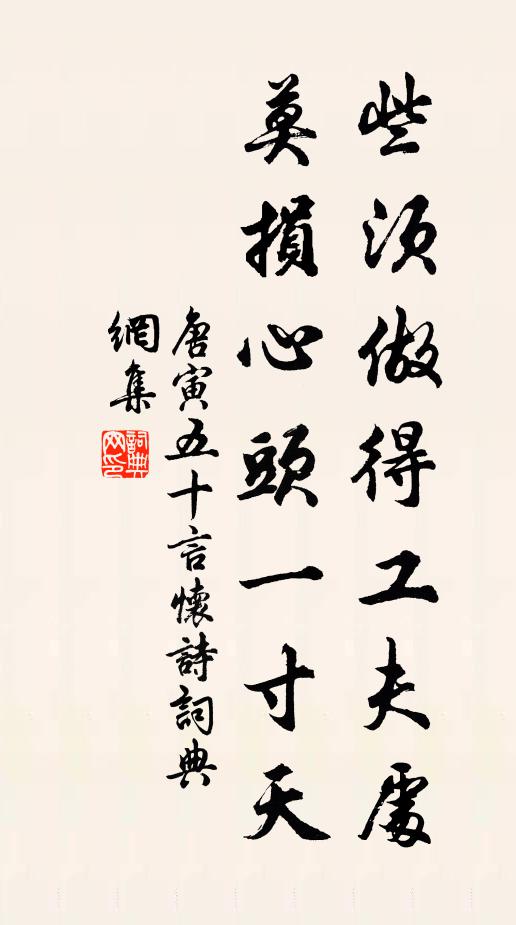 些須做得工夫處
莫損心頭一寸天
唐寅五十言懷詩詞典
網集
詞典
网印